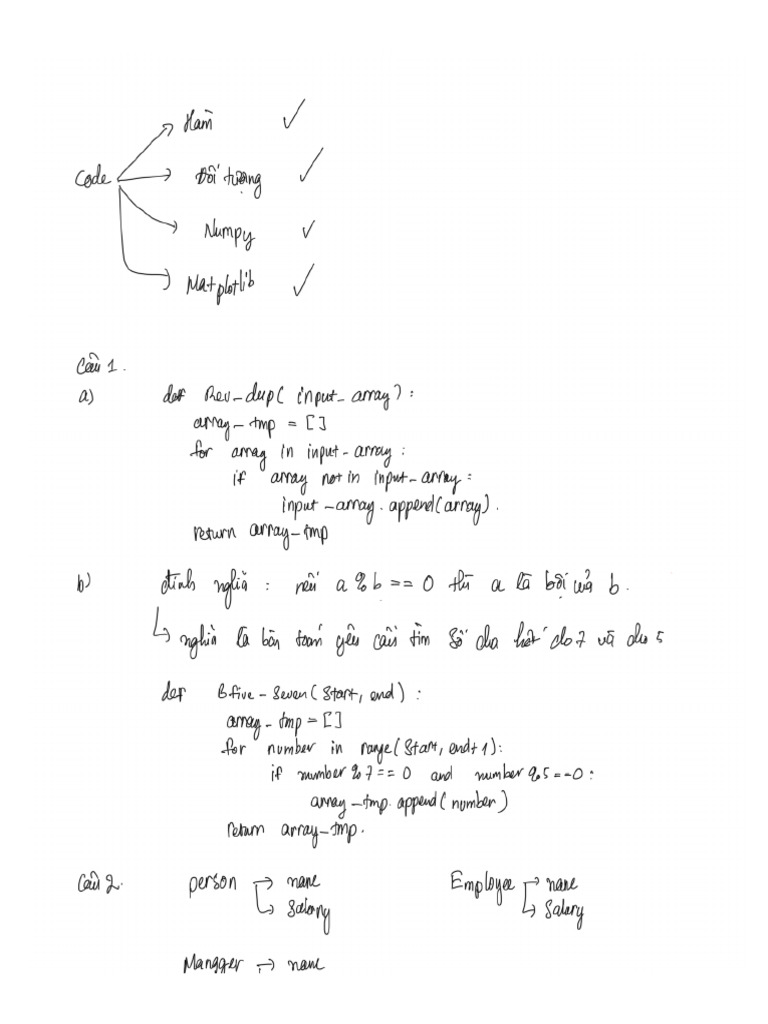 Code
Hàm
Đối tượng
Numpy
Matplotlib
Câu 1.
a) def Rev_dup( input_array) :
array_tmp = []
for array in input_array :
if array not in input_array :
input_array.append(array).
return array_tmp
b) định nghĩa : nếu a % b == 0 thì a là bội của b.
nghĩa là bài toán yêu cầu tìm số chia hết cho 7 và cho 5
def Bfive_Seven(Start, end) :
array_tmp = []
for number in range(Start, end+1):
if number % 7 == 0 and number % 5 == 0 :
array_tmp.append( number)
return array_tmp.
Câu 2. person name Employee name
Salary Salary
Mangger name